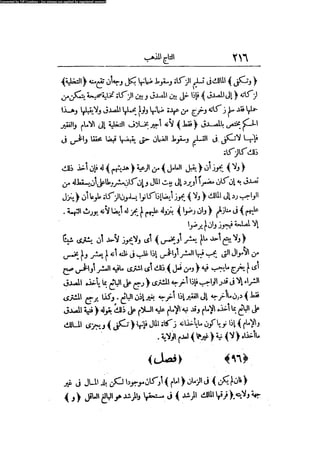 Converted by Tiff Combine - (no stamps are applied by registered version)
٢١٦ التاج المذهب
( وتكفى ) المالك فى تسليم الزكاة وسقوط ضمانها بكل وجه أن تقع منه ( التخلية )
لزكاته ( إلى المصدق ) فإذا خلى بين المصدق وبين الزكاة تخلية صحيحة يتمكن من
حملها فقد سلم زكاته وخرج من عهدة ضمانها ولو لم يحملها المصدق ولا يقبلها وهذا
الحكم يختص بالمصدق ( فقط ) لأنه أجير بخلاف التخلية إلى الامام والفقير
فإنها لا تكفى فى التسليم وسقوط الضمان حتى يقبضها قبضا محققا والخمس فى
ذلك كالزكاة
( ولا ) يجوز أن ( يقبل العامل ) من الرعية ( هديتهم ) له فإن أخذ ذلك
تصدق به إن كان مضمرا أو يرد إلى بيت المال وإن كان مشروطا على أن يسقط له من
الواجب رد إلى المالك ( ولا ) يجوز أيضا إذا كانوا يسلمون الزكاة طوعا أن ( ينزل
عليهم ) فى منازلهم ( وإن رضوا ) بنزوله عليهم لم يجز له أيضا لأنه يورث التهمة .
إلا لمصلحة فيجوز وإن لم يرضوا
( ولا يبتع أحد ما لم يعشر أو يخمس ) أى ولا يجوز لأحد أن يشترى شيئا
من الأموال التى يجب فيها العشر أو الخمس إذا غلب فى ظنه أنه لم يعشر ولم يخمس
أى لم يخرج ما يجب فيه ( ومن فعل ) ذلك أى اشترى ما فيه العشر أو الخمس صح
الشراء إلا فى قدر الواجب فإذا أخرجه المشترى ( رجع على البائع بما يأخذه المصدق
فقط ) دون ما أخرجه إلى الفقير إذا أخرجه بغير إذن البائع . وكذا يرجع المشترى
على البائع بما أخذه الإمام وقد نبه الإمام عليه السلام على ذلك بقوله ( فنية المصدق
والإمام ) إذا نويا كون ما يأخذانه زكاة المال فإنها ( تكفى ) ويجزى المالك
ما أخذاه ( لا ) نية ( غيرهما ) لعدم الولاية .
( ٩٦ ) ( فصل )
( فان لم يكن ) فى الزمان ( امام ) أو كان موجودا لكن بلد المال فى غير
جهة ولايته ( فرقها المالك المرشد ) فى مستحقها والمرشد هو البالغ العاقل ( و )